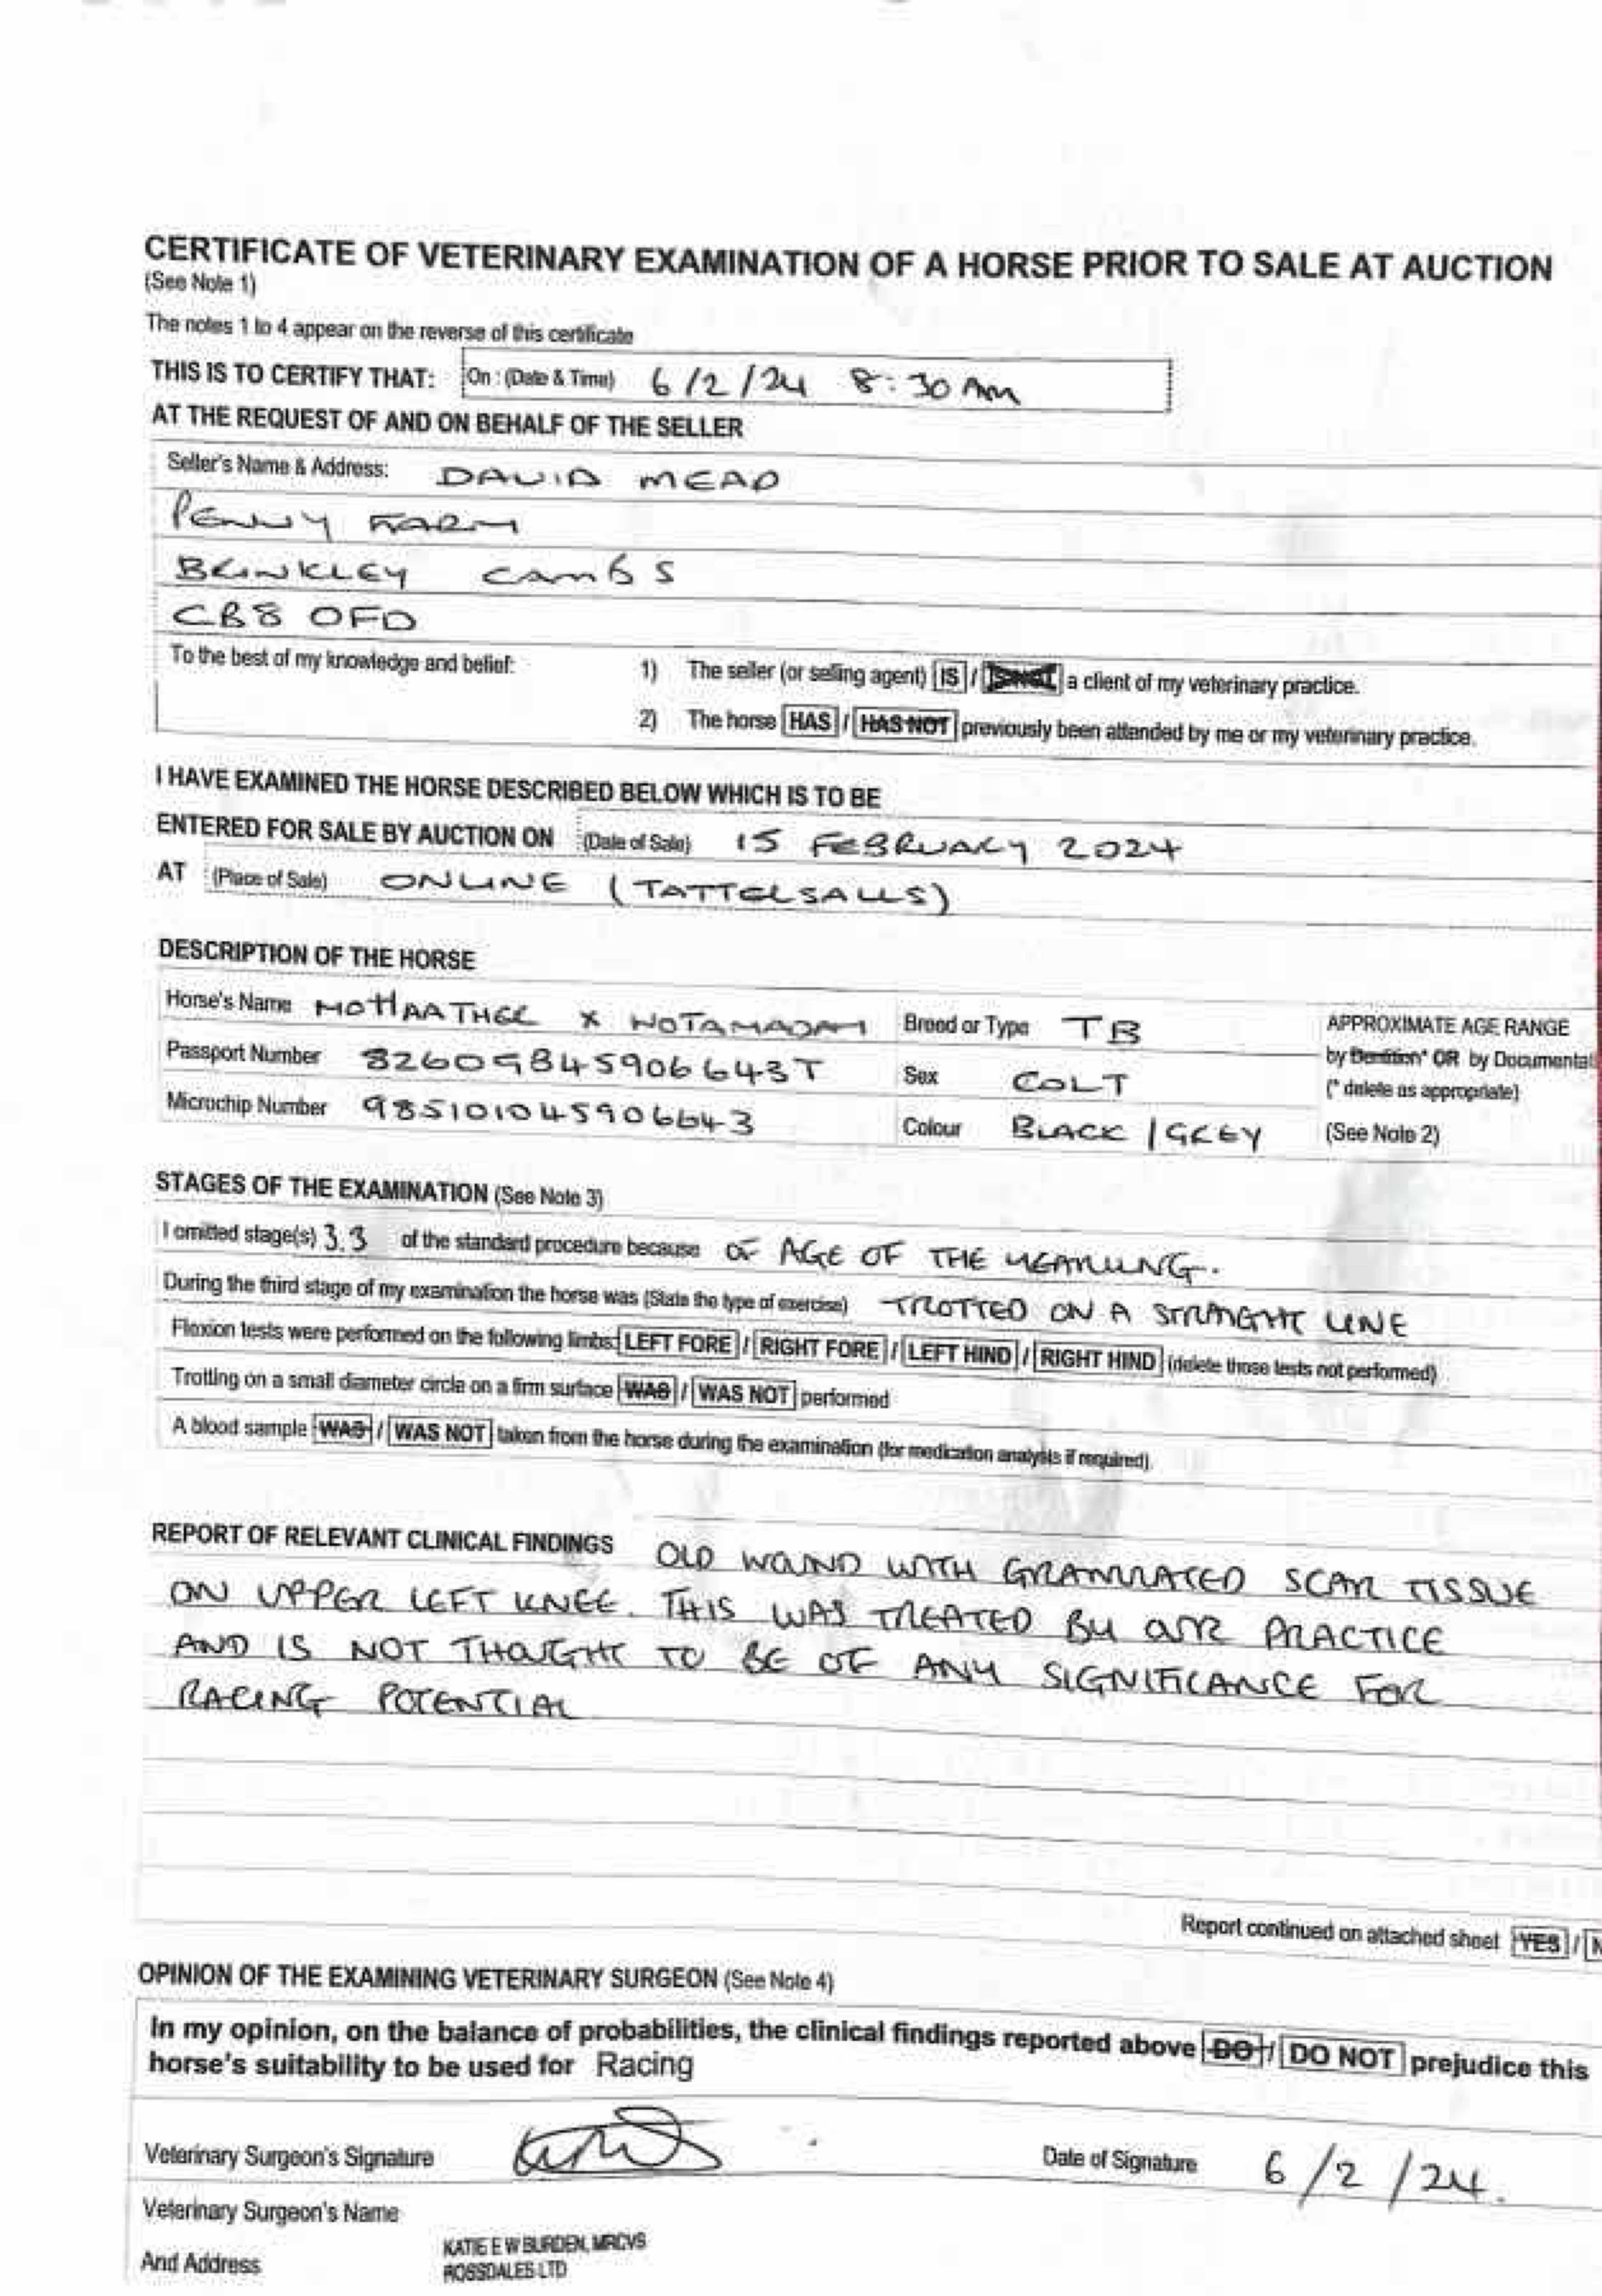 CERTIFICATE OF VETERINARY EXAMINATION OF A HORSE PRIOR TO SALE AT AUCTION
(See Note 1)
The notes 1 to 4 appear on the reverse of this certificate
THIS IS TO CERTIFY THAT: On : (Date & Time) 6/2/24 8:30 AM
AT THE REQUEST OF AND ON BEHALF OF THE SELLER
Seller's Name & Address: DAVID MEAD
PENNY FARM
BRINKLEY CAMBS
CB8 0FD
To the best of my knowledge and belief: 1) The seller (or selling agent) IS / IS NOT a client of my veterinary practice.
2) The horse HAS / HAS NOT previously been attended by me or my veterinary practice.
I HAVE EXAMINED THE HORSE DESCRIBED BELOW WHICH IS TO BE
ENTERED FOR SALE BY AUCTION ON (Date of Sale) 15 FEBRUARY 2024
AT (Place of Sale) ONLINE (TATTERSALLS)
DESCRIPTION OF THE HORSE
Horse's Name MOHAATHER X NOTAMADAM Breed or Type TB APPROXIMATE AGE RANGE
Passport Number 82609845906643T Sex COLT by Dentition* OR by Documentat
Microchip Number 985101045906643 (* delete as appropriate)
Colour BLACK / GREY (See Note 2)
STAGES OF THE EXAMINATION (See Note 3)
I omitted stage(s) 3.3 of the standard procedure because OF AGE OF THE YEARLING.
During the third stage of my examination the horse was (State the type of exercise) TROTTED ON A STRAIGHT LINE
Flexion tests were performed on the following limbs: LEFT FORE / RIGHT FORE / LEFT HIND / RIGHT HIND (delete those tests not performed)
Trotting on a small diameter circle on a firm surface WAS / WAS NOT performed
A blood sample WAS / WAS NOT taken from the horse during the examination (for medication analysis if required).
REPORT OF RELEVANT CLINICAL FINDINGS OLD WOUND WITH GRANULATED SCAR TISSUE
ON UPPER LEFT KNEE. THIS WAS TREATED BY OUR PRACTICE
AND IS NOT THOUGHT TO BE OF ANY SIGNIFICANCE FOR
RACING POTENTIAL
Report continued on attached sheet YES / N
OPINION OF THE EXAMINING VETERINARY SURGEON (See Note 4)
In my opinion, on the balance of probabilities, the clinical findings reported above DO / DO NOT prejudice this
horse's suitability to be used for Racing
Veterinary Surgeon's Signature Date of Signature 6/2/24.
Veterinary Surgeon's Name
KATIE E W BURDEN, MRCVS
And Address ROSSDALES LTD